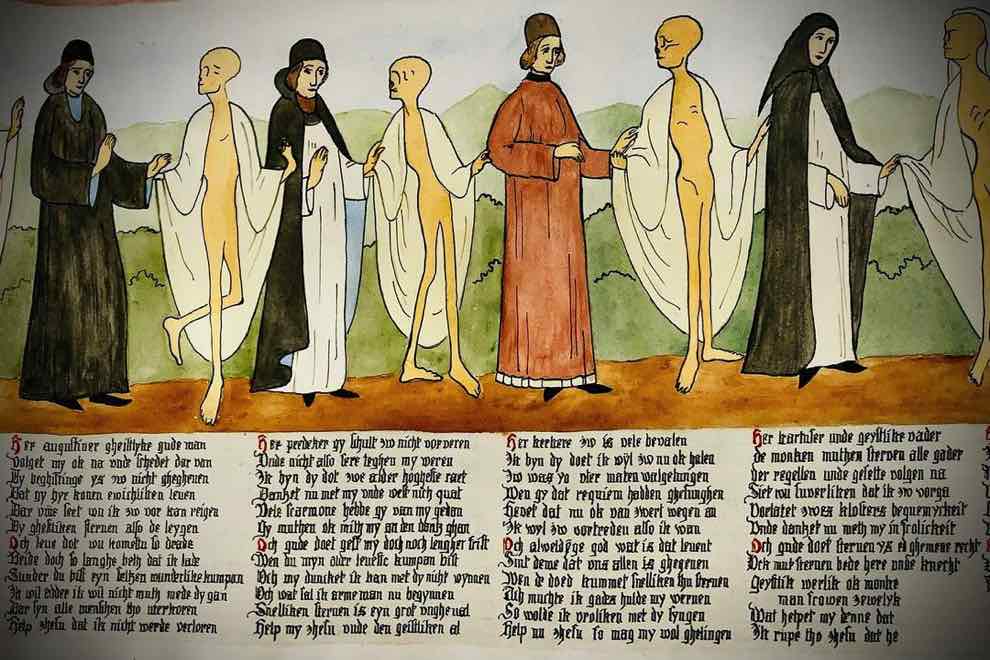 Her augustiner gheistlyke gude man
Volget my ok na vnde schedet dar van
beghiftinge ys iw nicht ghegheuen
Dat gy hyr konen ewichliken leuen
Dar vme seet wu ik iw vor kan reigen
Dy ghestliken sternen also de leygen
Och leue dot wu kometstu so drade
Beide doch so langhe beth dat ik lade
Sunder du bist eyn selzen wunderlike kumpan
Ik wil edder ik wil nicht muth mede dy gan
Dar syn alle menschen tho uterkoren
Help ihesu dat ik nicht werde verloren
Her predeker gy schult iw nicht vorveren
Vnde nicht also sere teghen my weren
Ik byn dy dot iwe alder hogheste raet
Danket nu met my vnde west nich quat
Vele sermone hebbe gy van my gedan
Gy muthen ok mith my an den dantz ghan
Och gude doet geff my doch noch lengher frist
Wen du myn older leueste kumpan bist
Och my duncket ik kan met dy nicht wynnen
Och wat sal ik arme man nu begynnen
Snelliken sternen is eyn grot vngheual
Help my ihesu vnde den geistliken al
Her kerkere iw is vele bevalen
Ik byn dy doet ik wyl iw nu ok halen
Iw was io vor maten walgelungen
Wen gy dat requiem hadden ghesunghen
Gevet dat nu ok van iwert wegen an
Ik wel iw vortreden also ik kan
Och alweldyge god wat is dat leuent
Sint deme dat vns allen is ghegenen
Wen de doed kummet snelliken tho sternen
Och muchte ik gades hulde my wernen
So wolde ik vroliken met dy syngen
Help nu ihesu so mag my wol ghelingen
Her kartuser unde geystlike vader
de monken muthen sterven alle gader
der regellen unde gesette volgen na
Siet wu suverliken dat ik iw vorga
Vorlatet iwes klosters bequemykeit
Vnde danket nu meth my in frolickeit
Och gude doet sternen ys ghemene recht
Ock mut sternen bede here vnde knecht
Geystlik werlik ok monke
man frouwen
Wat helpet my denne dat
Ik rupe tho ihesu dat he